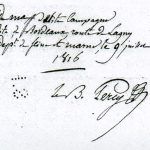 ma petite campagne
de Bordeaux route de Lagny
dept. de seine et marne le 9 juillet
1816
Le B. Percy